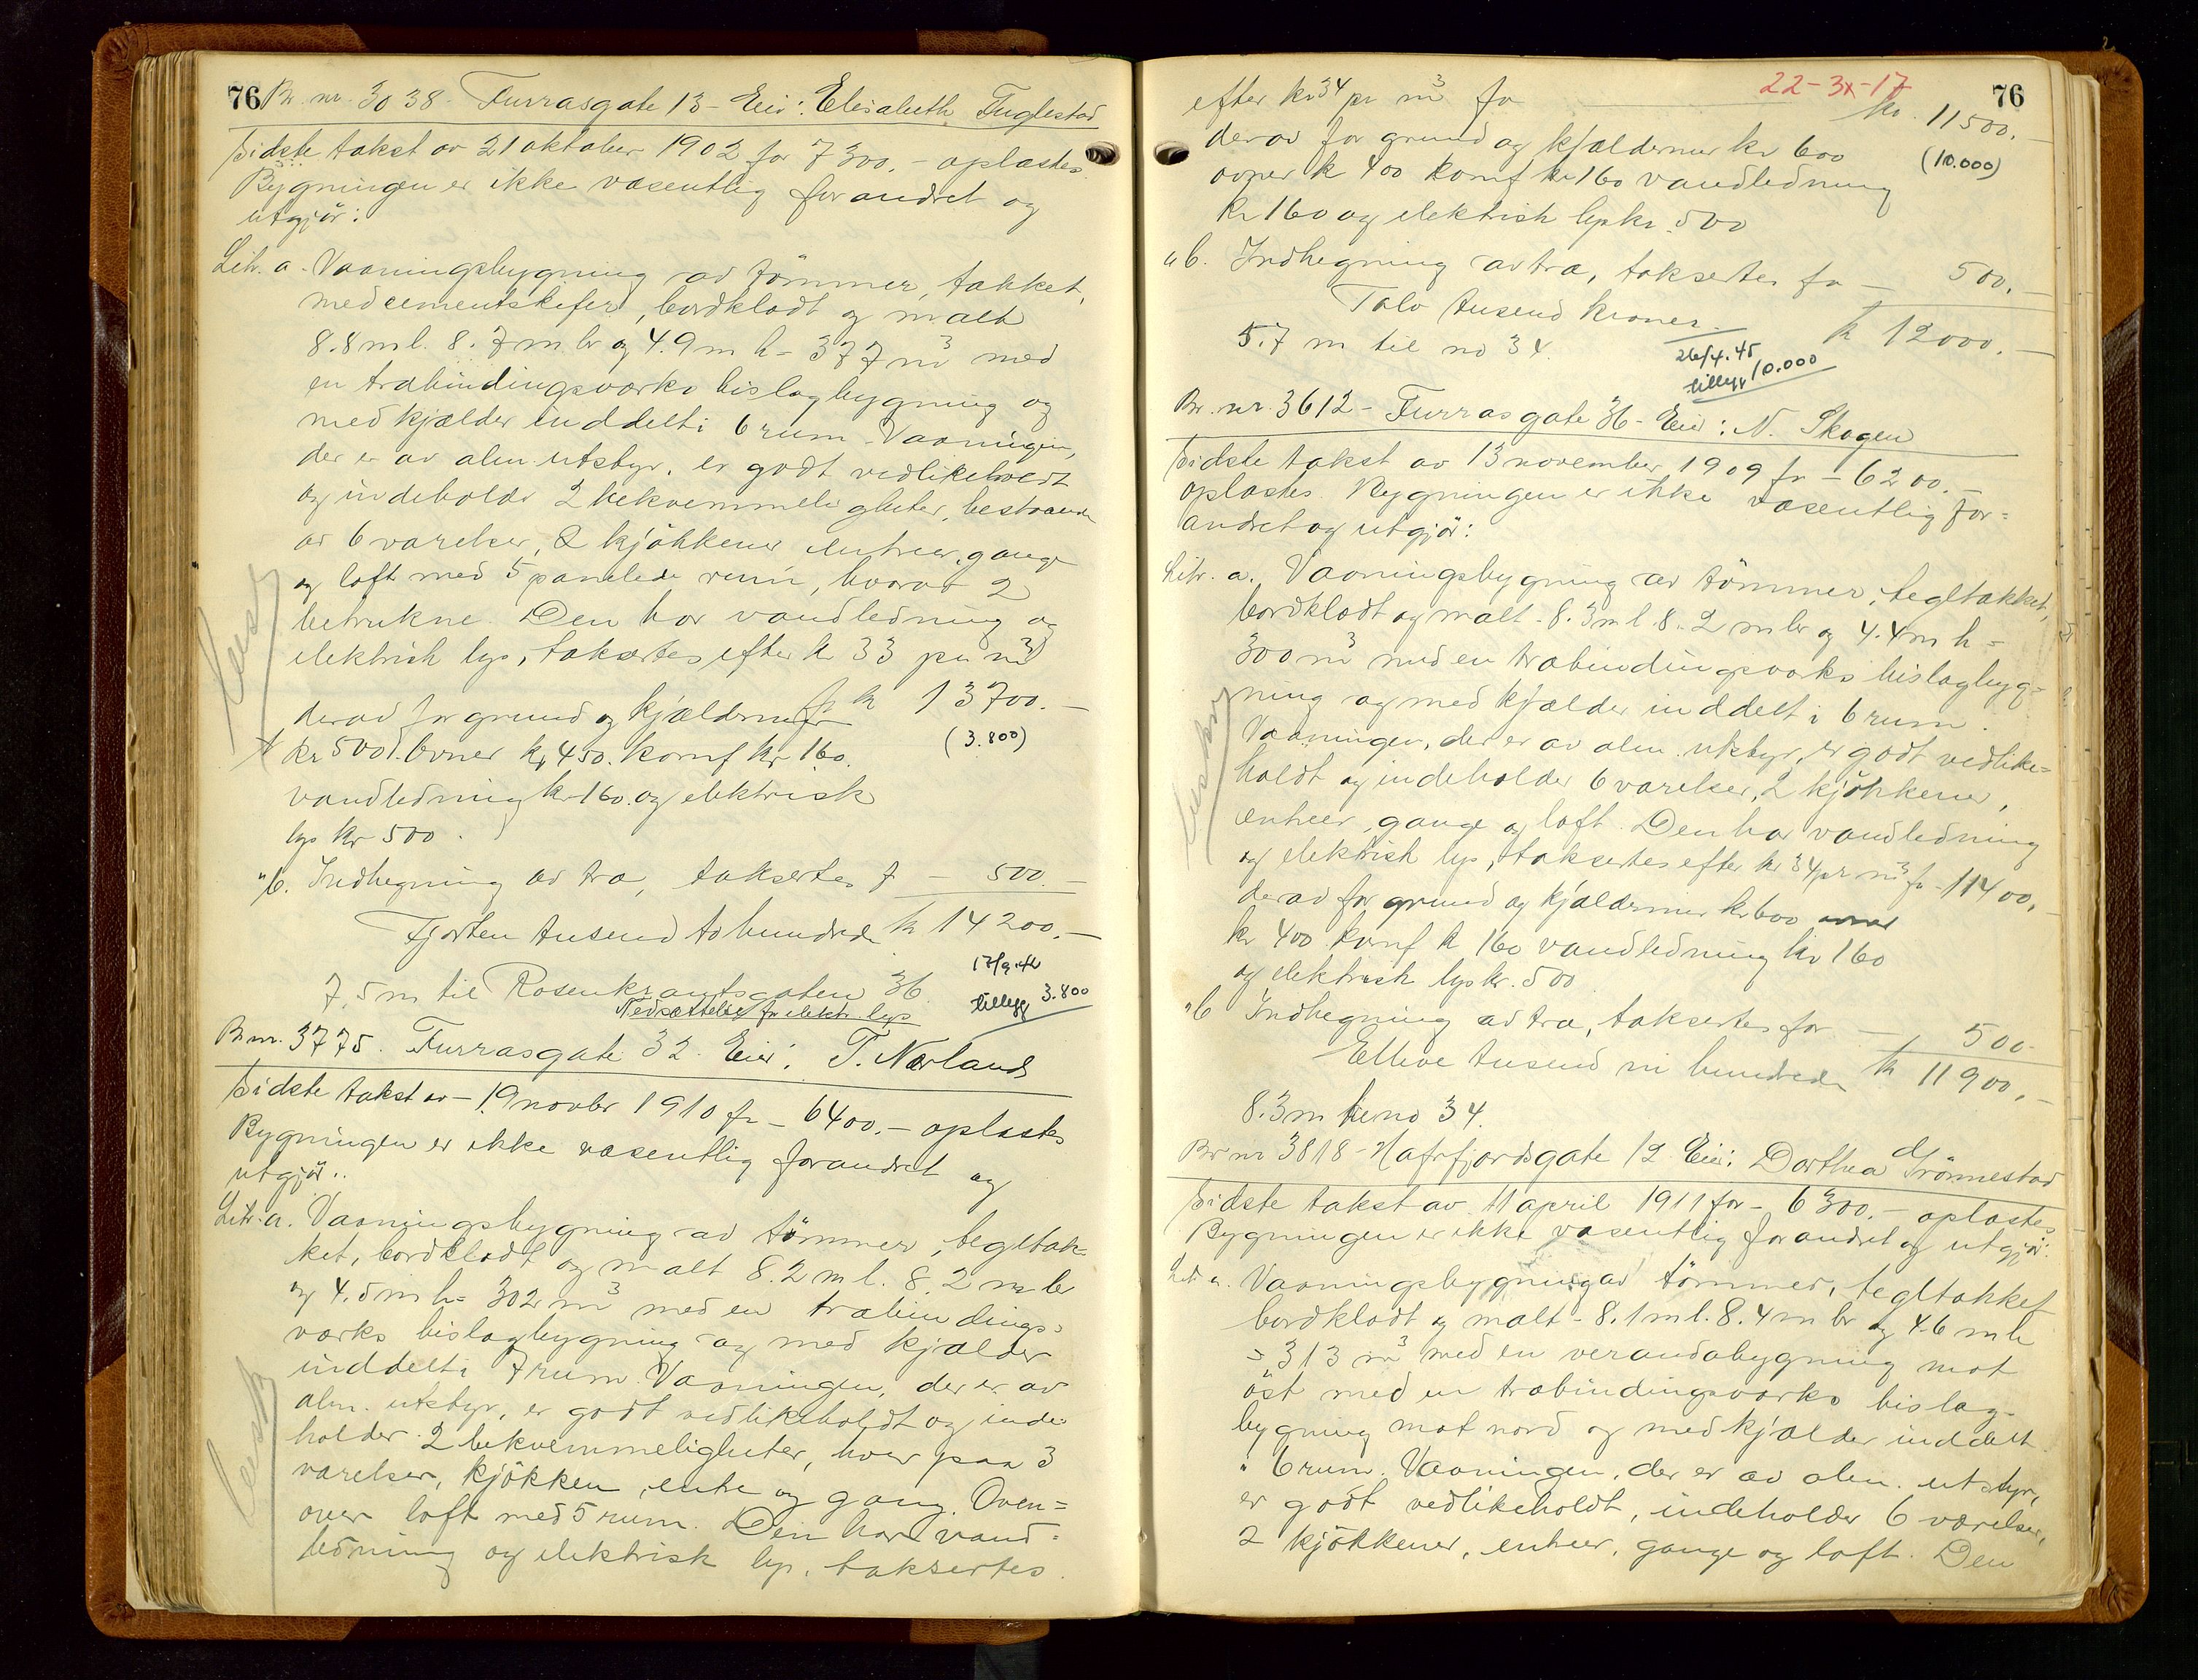 76 Br. nr. 3038 - Furrasgate 13 - Eier: Elisabeth Fuglestad
Sidste takst av 21 oktober 1902 for 7300.- oplæstes.
Bygningen er ikke væsentlig forandret og
utgjör:
Litr. a. Vaaningsbygning av tömmer, takket,
med cementskifer, bordklædt og malt
8.8 m l. 8.7 m br og 4.9 m h = 377 m³ med
en træbindingsværks bislagbygning og
med kjælder inddelt i 6 rum. Vaaningen,
der er av alm. utstyr, er godt vedlikeholdt
og indeholder 2 bekvemmeligheter, bestaaende
av 6 værelser, 2 kjökkener entreer, gange
og loft med 5 panelede rum, hvorav 2
betrukne. Den har vandledning og
elektrisk lys, taksertes efter kr 33 pr m³
for kr 13700.-
derav for grund og kjældermur
(3.800)
kr 500. Ovner kr 450. komf kr 160.
vandledning kr 160. og elektrisk
lys kr 500.
" b. Indhegning av træ, taksertes f - 500.-
Fjorten tusend to hundrede kr 14200.-
7.5 m til Rosenkrantsgaten 36.
17/9.42
tillegg 3.800
Nedsættelse for elektr. lys
Br. nr. 3775. Furrasgate 32. Eier: T. Nærland
Sidste takst av - 19 novbr 1910 for - 6400.- oplæstes
Bygningen er ikke væsentlig forandret og
utgjör:
Litr. a. Vaaningsbygning av tömmer, tegltak-
ket, bordklædt og malt 8.2 m l. 8.2 m br
og 4.5 m h = 302 m³ med en træbindings-
værks bislagbygning og med kjælder
inddelt i 7 rum. Vaaningen, der er av
alm. utstyr, er godt vedlikeholdt og inde-
holder 2 bekvemmeligheter, hver paa 3
værelser, kjökken, entre og gang. Oven-
over loft med 5 rum. Den har vand-
ledning og elektrisk lys, taksertes
22-3x-17 76
efter kr 34 pr m³ for kr. 11500.-
derav for grund og kjældermur kr 600
(10.000)
ovner kr 400 komf kr 160 vandledning
kr 160 og elektrisk lys kr. 500
" b. Indhegning av træ, taksertes for - 500.-
Tolv tusend kroner kr 12000.-
5.7 m til no 34.
26/4.45
tillegg 10.000
Br. nr. 3612 - Furrasgate 36 - Eier: N. Skogen
Sidste takst av 13 november 1909 for - 6200.-
oplæstes. Bygningen er ikke væsentlig for-
andret og utgjör:
Litr. a. Vaaningsbygning av tömmer, tegltakket,
bordklædt og malt - 8.3 m l. 8.2 m br og 4.4 m h =
300 m³ med en træbindingsværks bislagbyg-
ning og med kjælder inddelt i 6 rum.
Vaaningen, der er av alm. utstyr, er godt vedlike-
holdt og indeholder 6 værelser, 2 kjökkener,
entreer, gange og loft. Den har vandledning
og elektrisk lys, taksertes efter kr 34 pr m³ for - 11400.-
derav for grund og kjældermur kr 600 ovner
kr 400 komf kr 160 vandledning kr 160
og elektrisk lys kr. 500
" b Indhegning av træ, taksertes for - 500-
Elleve tusend ni hundrede kr 11900.-
8.3 m til no 34.
Br nr 3818 - Hafrfjordsgate 12 Eier: Dorthea Grönnestad
Sidste takst av 11 april 1911 for - 6300.- oplæstes
Bygningen er ikke væsentlig forandret og utgjör:
Litr a. Vaaningsbygning av tömmer, tegltakket
bordklædt og malt - 8.1 m l. 8.4 m br og 4.6 m h
= 313 m³ med en verandabygning mot
öst med en træbindingsværks bislag-
bygning mot nord og med kjælder inddelt
i 6 rum. Vaaningen, der er av alm. utstyr,
er godt vedlikeholdt, indeholder 6 værelser,
2 kjökkener, entreer, gange og loft. Den